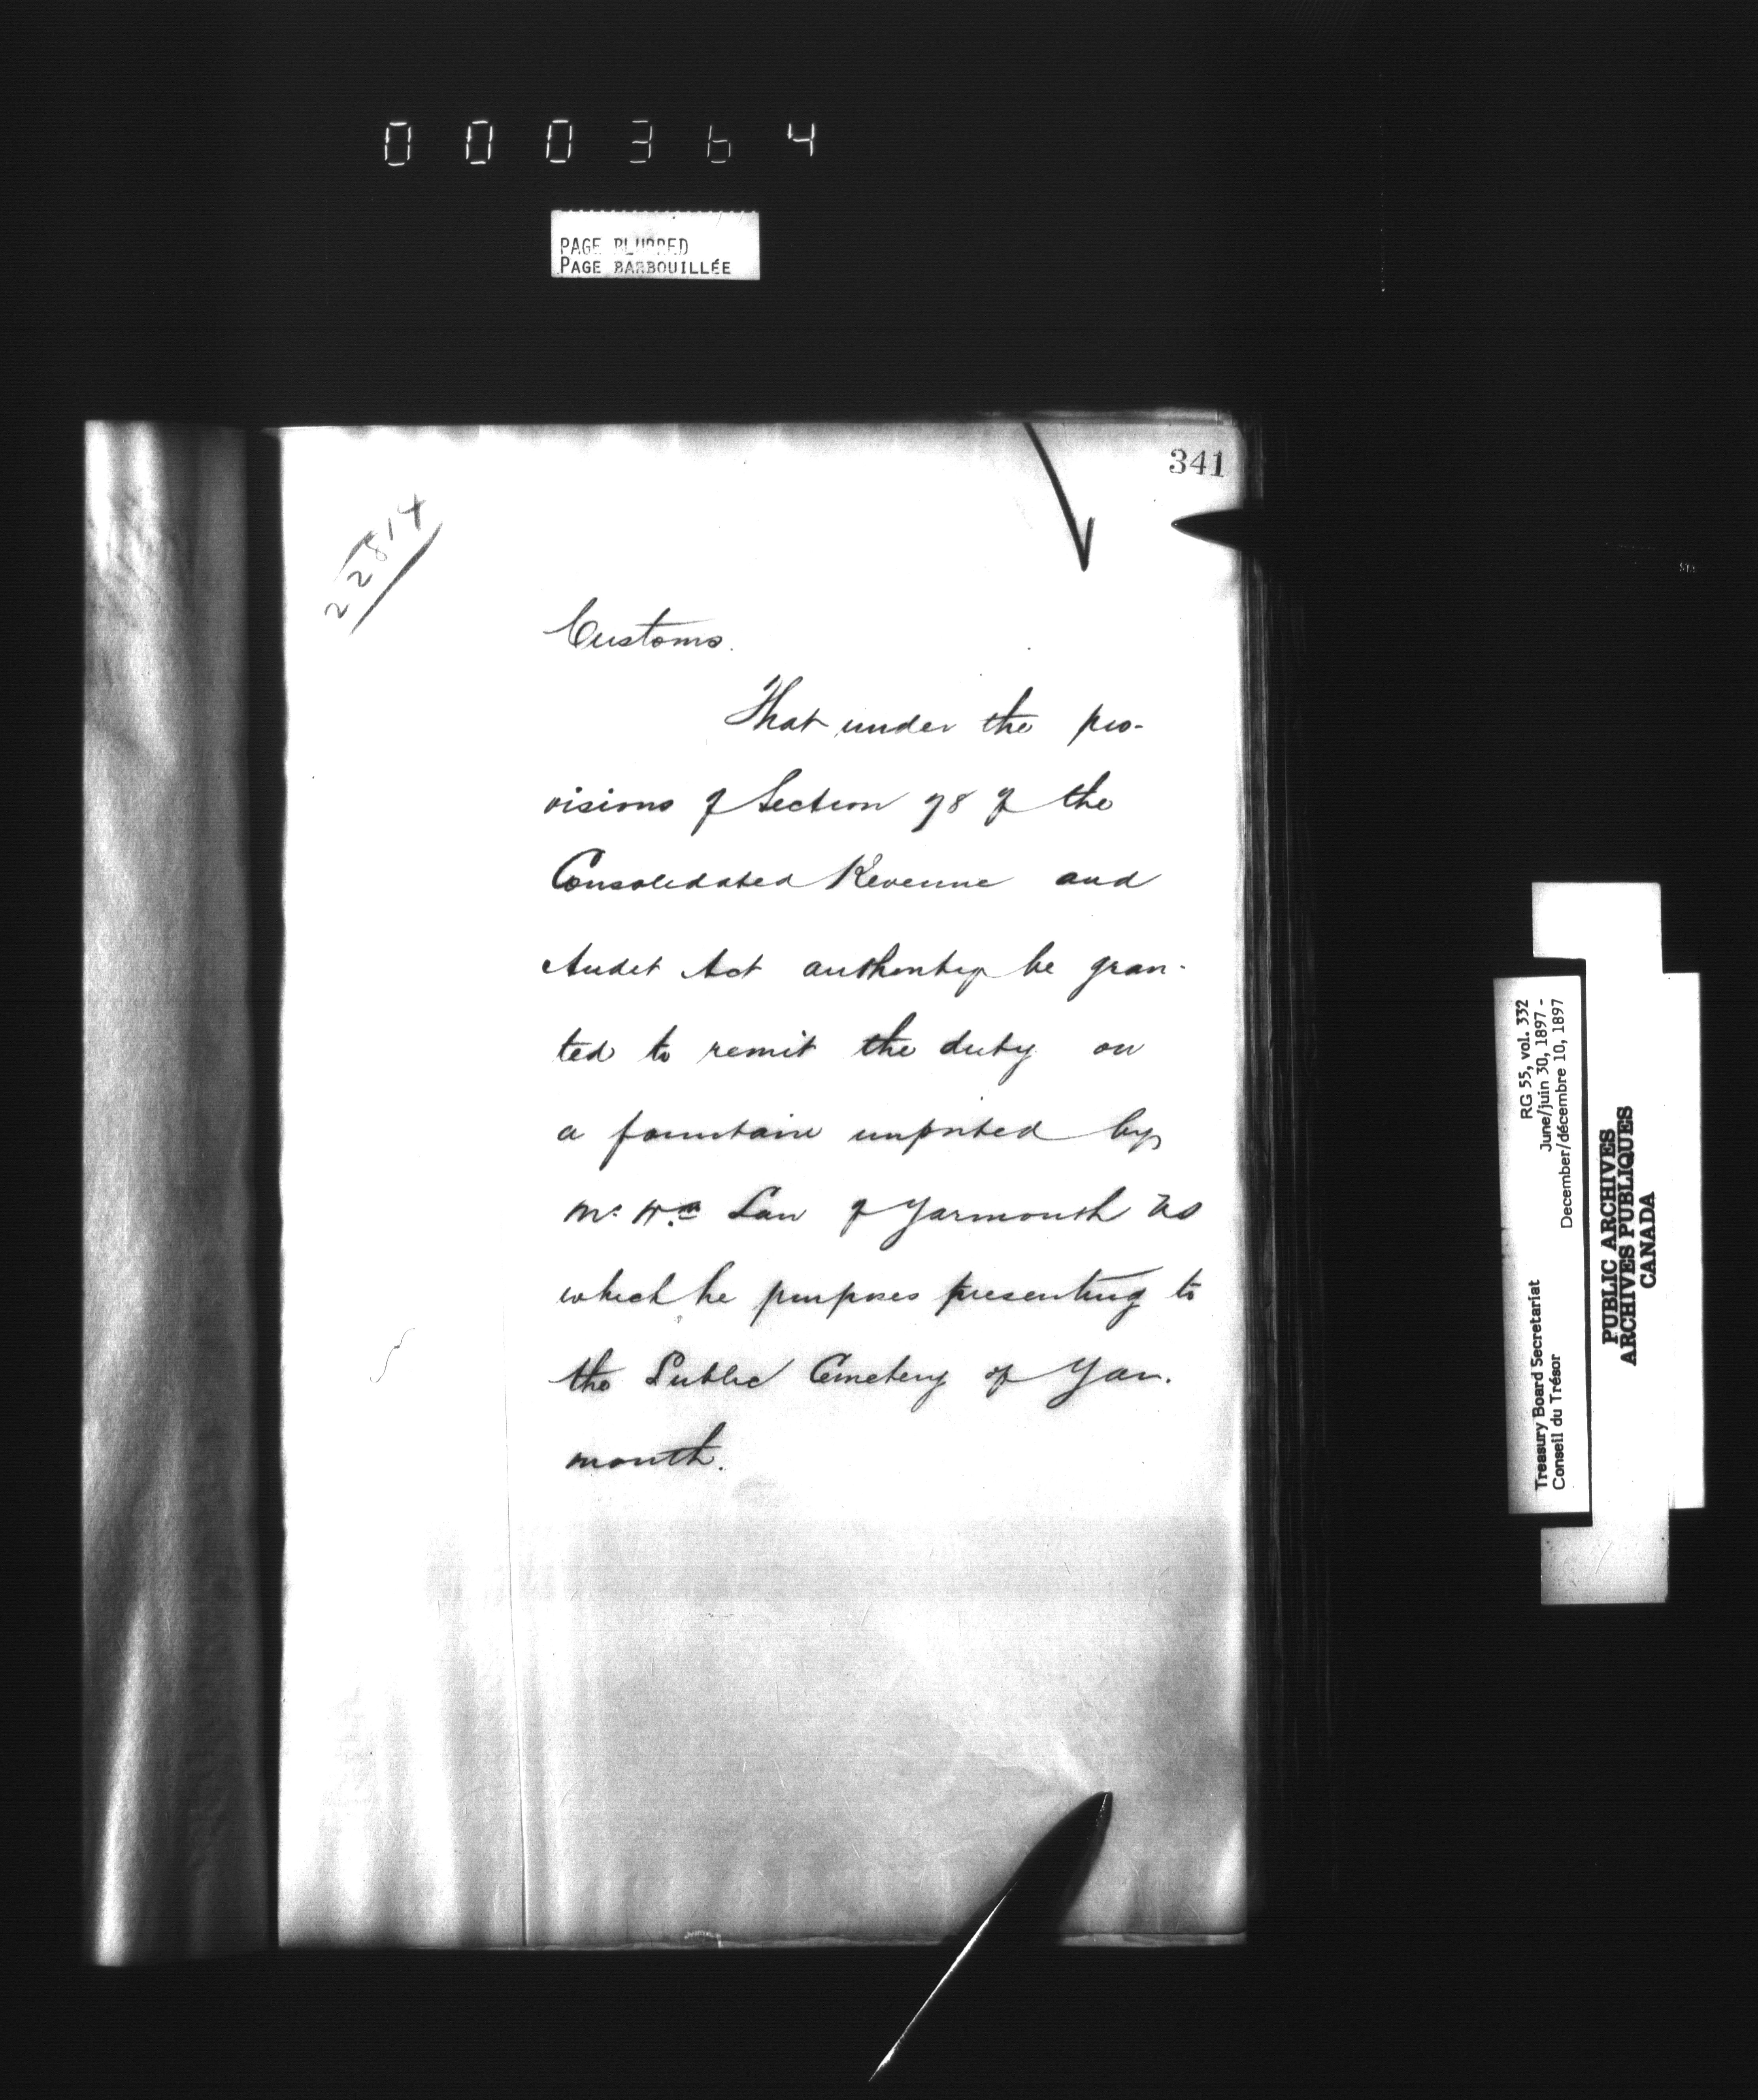 000364
PAGE BLURRED
PAGE BARBOUILLÉE
341
22814
Customs.
That under the pro-
visions of Section 78 of the
Consolidated Revenue and
Audit Act authority be gran-
ted to remit the duty on
a fountain imported by
Mr. Wm Law of Yarmouth NS
which he purposes presenting to
the Public Cemetery of Yar-
mouth.
RG 55, vol. 332
June/juin 30, 1897 -
December/décembre 10, 1897
Treasury Board Secretariat
Conseil du Trésor
PUBLIC ARCHIVES
ARCHIVES PUBLIQUES
CANADA